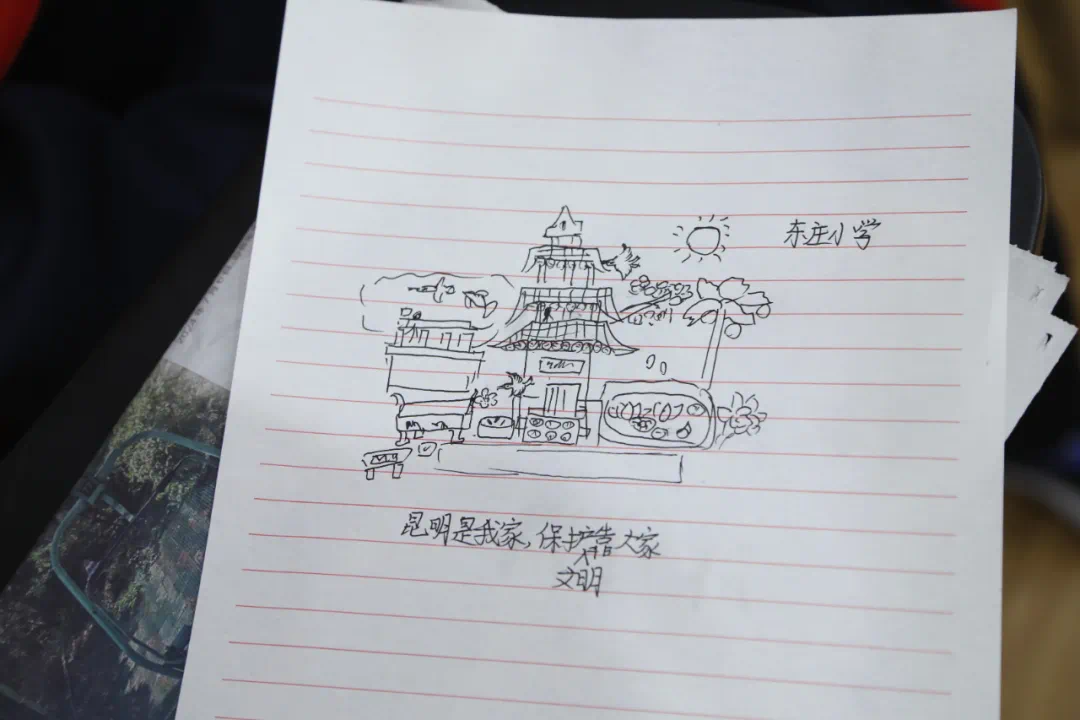 东庄小学
昆明是我家,保护靠大家
文明